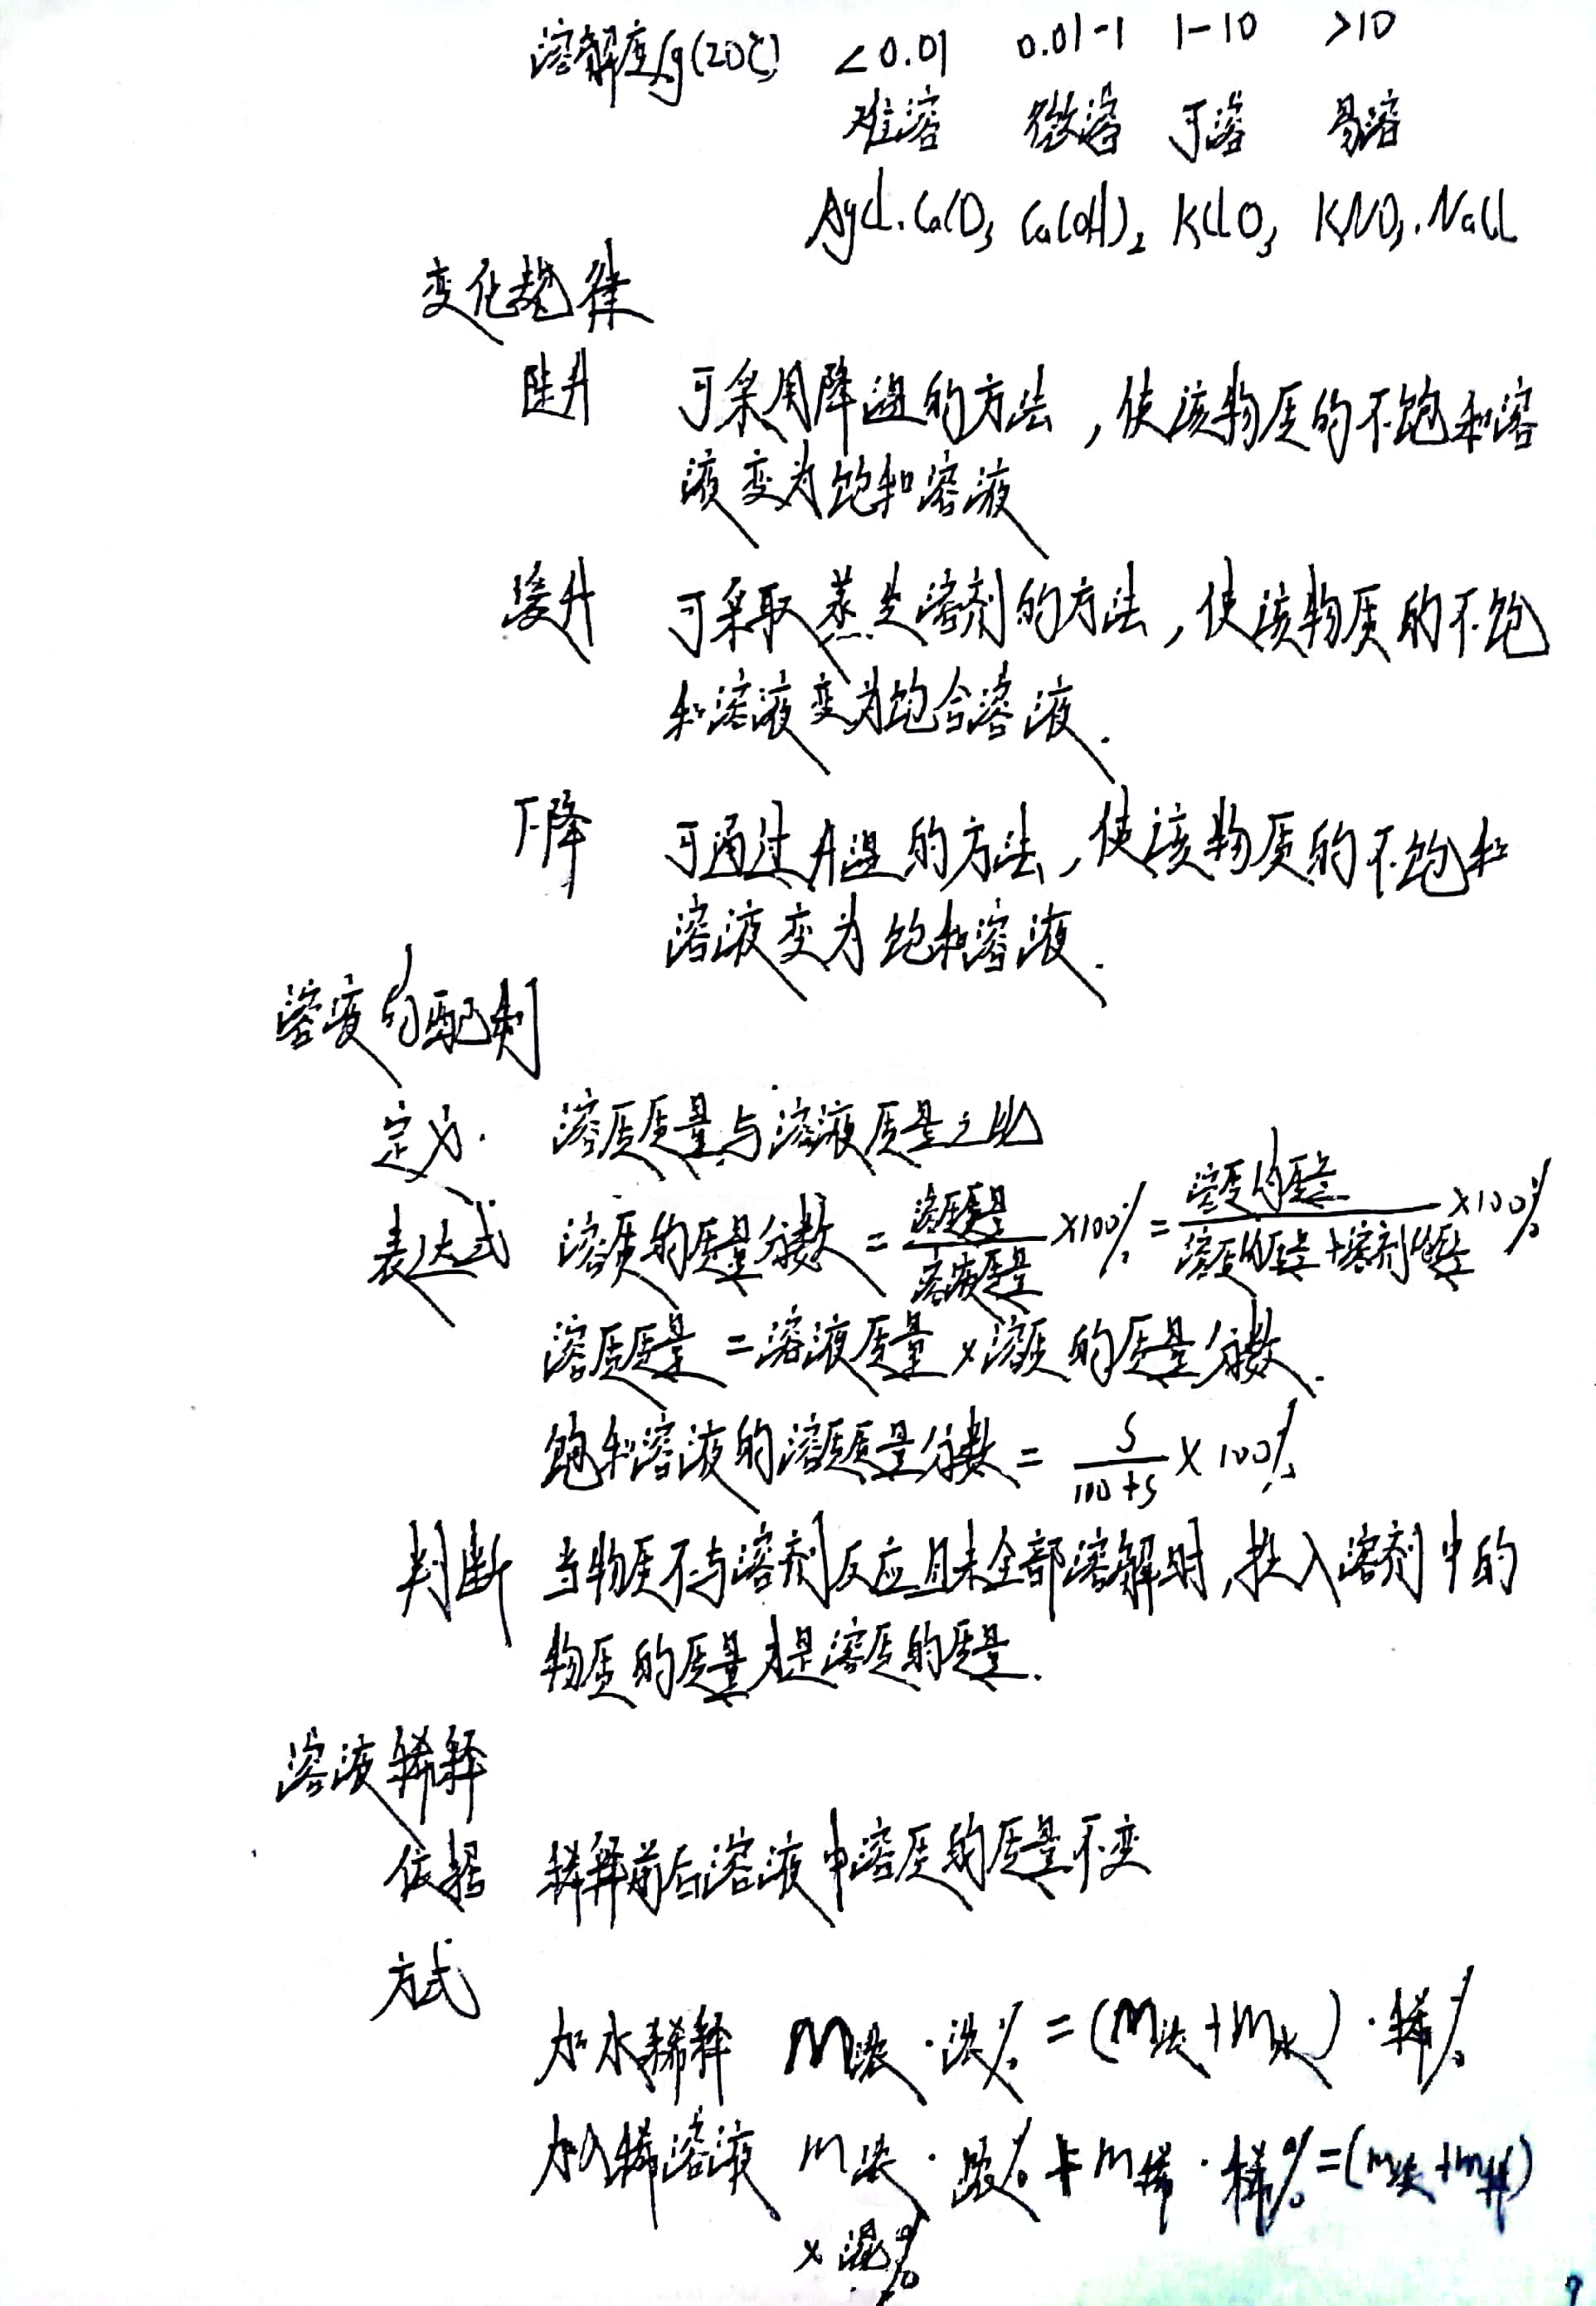 溶解度/g(20℃) <0.01 0.01-1 1-10 >10
难溶 微溶 可溶 易溶
AgCl.CaCO₃ Ca(OH)₂ KClO₃ KNO₃.NaCl
变化规律
陡升 可采用降温的方法,使该物质的不饱和溶
液变为饱和溶液
缓升 可采取蒸发溶剂的方法,使该物质的不饱
和溶液变为饱合溶液.
下降 可通过升温的方法,使该物质的不饱和
溶液变为饱和溶液.
溶液的配制
定义. 溶质质量与溶液质量之比
表达式 溶质的质量分数=溶质质量/溶液质量×100%=溶质的质量/溶质的质量+溶剂的质量×100%
溶质质量=溶液质量×溶质的质量分数.
饱和溶液的溶质质量分数=S/100+S×100%
判断 当物质不与溶剂反应且未全部溶解时,投入溶剂中的
物质的质量才是溶质的质量.
溶液稀释
依据 稀释前后溶液中溶质的质量不变
方式
加水稀释 m浓·浓%=(m浓+m水)·稀%
加入稀溶液 m浓·浓%+m稀·稀%=(m浓+m稀)
×混%